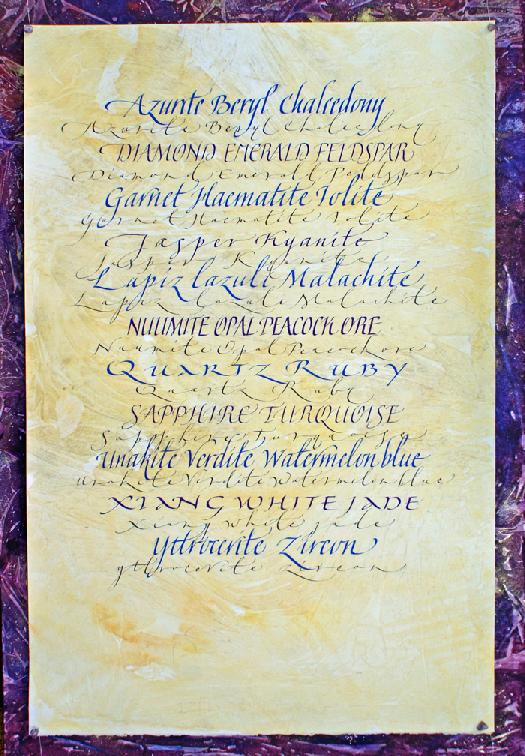 Azurite Beryl Chalcedony
Azurite Beryl Chalcedony
DIAMOND EMERALD FELDSPAR
Diamond Emerald Feldspar
Garnet Haematite Iolite
garnet Haematite Iolite
Jasper Kyanite
Jasper Kyanite
Lapiz lazuli Malachite
Lapiz lazuli Malachite
NUUMITE OPAL PEACOCK ORE
Nuumite Opal Peacock ore
QUARTZ RUBY
Quartz Ruby
SAPPHIRE TURQUOISE
Sapphire turquoise
Unakite Verdite Watermelon blue
unakite Verdite Watermelon blue
XIANG WHITE JADE
Xiang white jade
Yttrocerite Zircon
yttrocerite Zircon